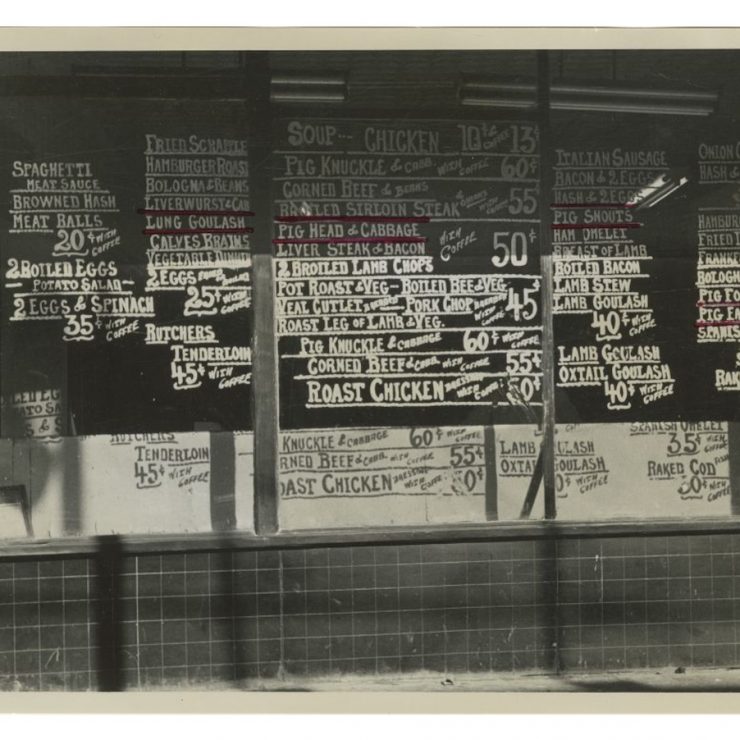 SPAGHETTI
MEAT SAUCE
BROWNED HASH
MEAT BALLS
20¢ WITH COFFEE
2 BOILED EGGS
POTATO SALAD
2 EGGS & SPINACH
35¢ WITH COFFEE
FRIED SCRAPPLE
HAMBURGER ROAST
BOLOGNA & BEANS
LIVERWURST & CAB
LUNG GOULASH
CALVES BRAINS
VEGETABLE DINNER
2 EGGS
25¢ WITH COFFEE
RUTCHERS
TENDERLOIN
45¢ WITH COFFEE
SOUP CHICKEN 10¢ & 13¢
PIG KNUCKLE & CABB. WITH COFFEE 60¢
CORNED BEEF & BEANS
BROILED SIRLOIN STEAK WITH COFFEE 55¢
PIG HEAD & CABBAGE
LIVER STEAK & BACON
WITH COFFEE 50¢
2 BROILED LAMB CHOPS
POT ROAST & VEG - BOILED BEEF & VEG
VEAL CUTLET PORK CHOP 45
ROAST LEG OF LAMB & VEG.
PIG KNUCKLE & CABB. 60¢ WITH COFFEE
CORNED BEEF & CABB. WITH COFFEE 55¢
ROAST CHICKEN DRESSING WITH COFFEE
ITALIAN SAUSAGE
BACON & 2 EGGS
HASH & 2 EGGS
PIG SNOUTS
HAM OMELET
BREAST OF LAMB
BOILED BACON
LAMB STEW
LAMB GOULASH
40¢ WITH COFFEE
LAMB GOULASH
OXTAIL GOULASH
40¢ WITH COFFEE
ONION
HASH &
HAMBUR
FRIED
FRANKF
BOLOGN
PIG FO
PIG EA
SPANIS
ROA
RAK
OILED EG
OTATO SA
& S
RUTCHERS
TENDERLOIN
45¢ WITH COFFEE
KNUCKLE & CABBAGE 60¢ WITH COFFEE
RNED BEEF & CABB. WITH COFFEE 55¢
OAST CHICKEN DRESSING WITH COFFEE 0¢
LAMB GOULASH
OXTAIL GOULASH
0¢ WITH COFFEE
SPANISH OMELET
35¢ WITH COFFEE
RAKED COD FISH
30¢ WITH COFFEE